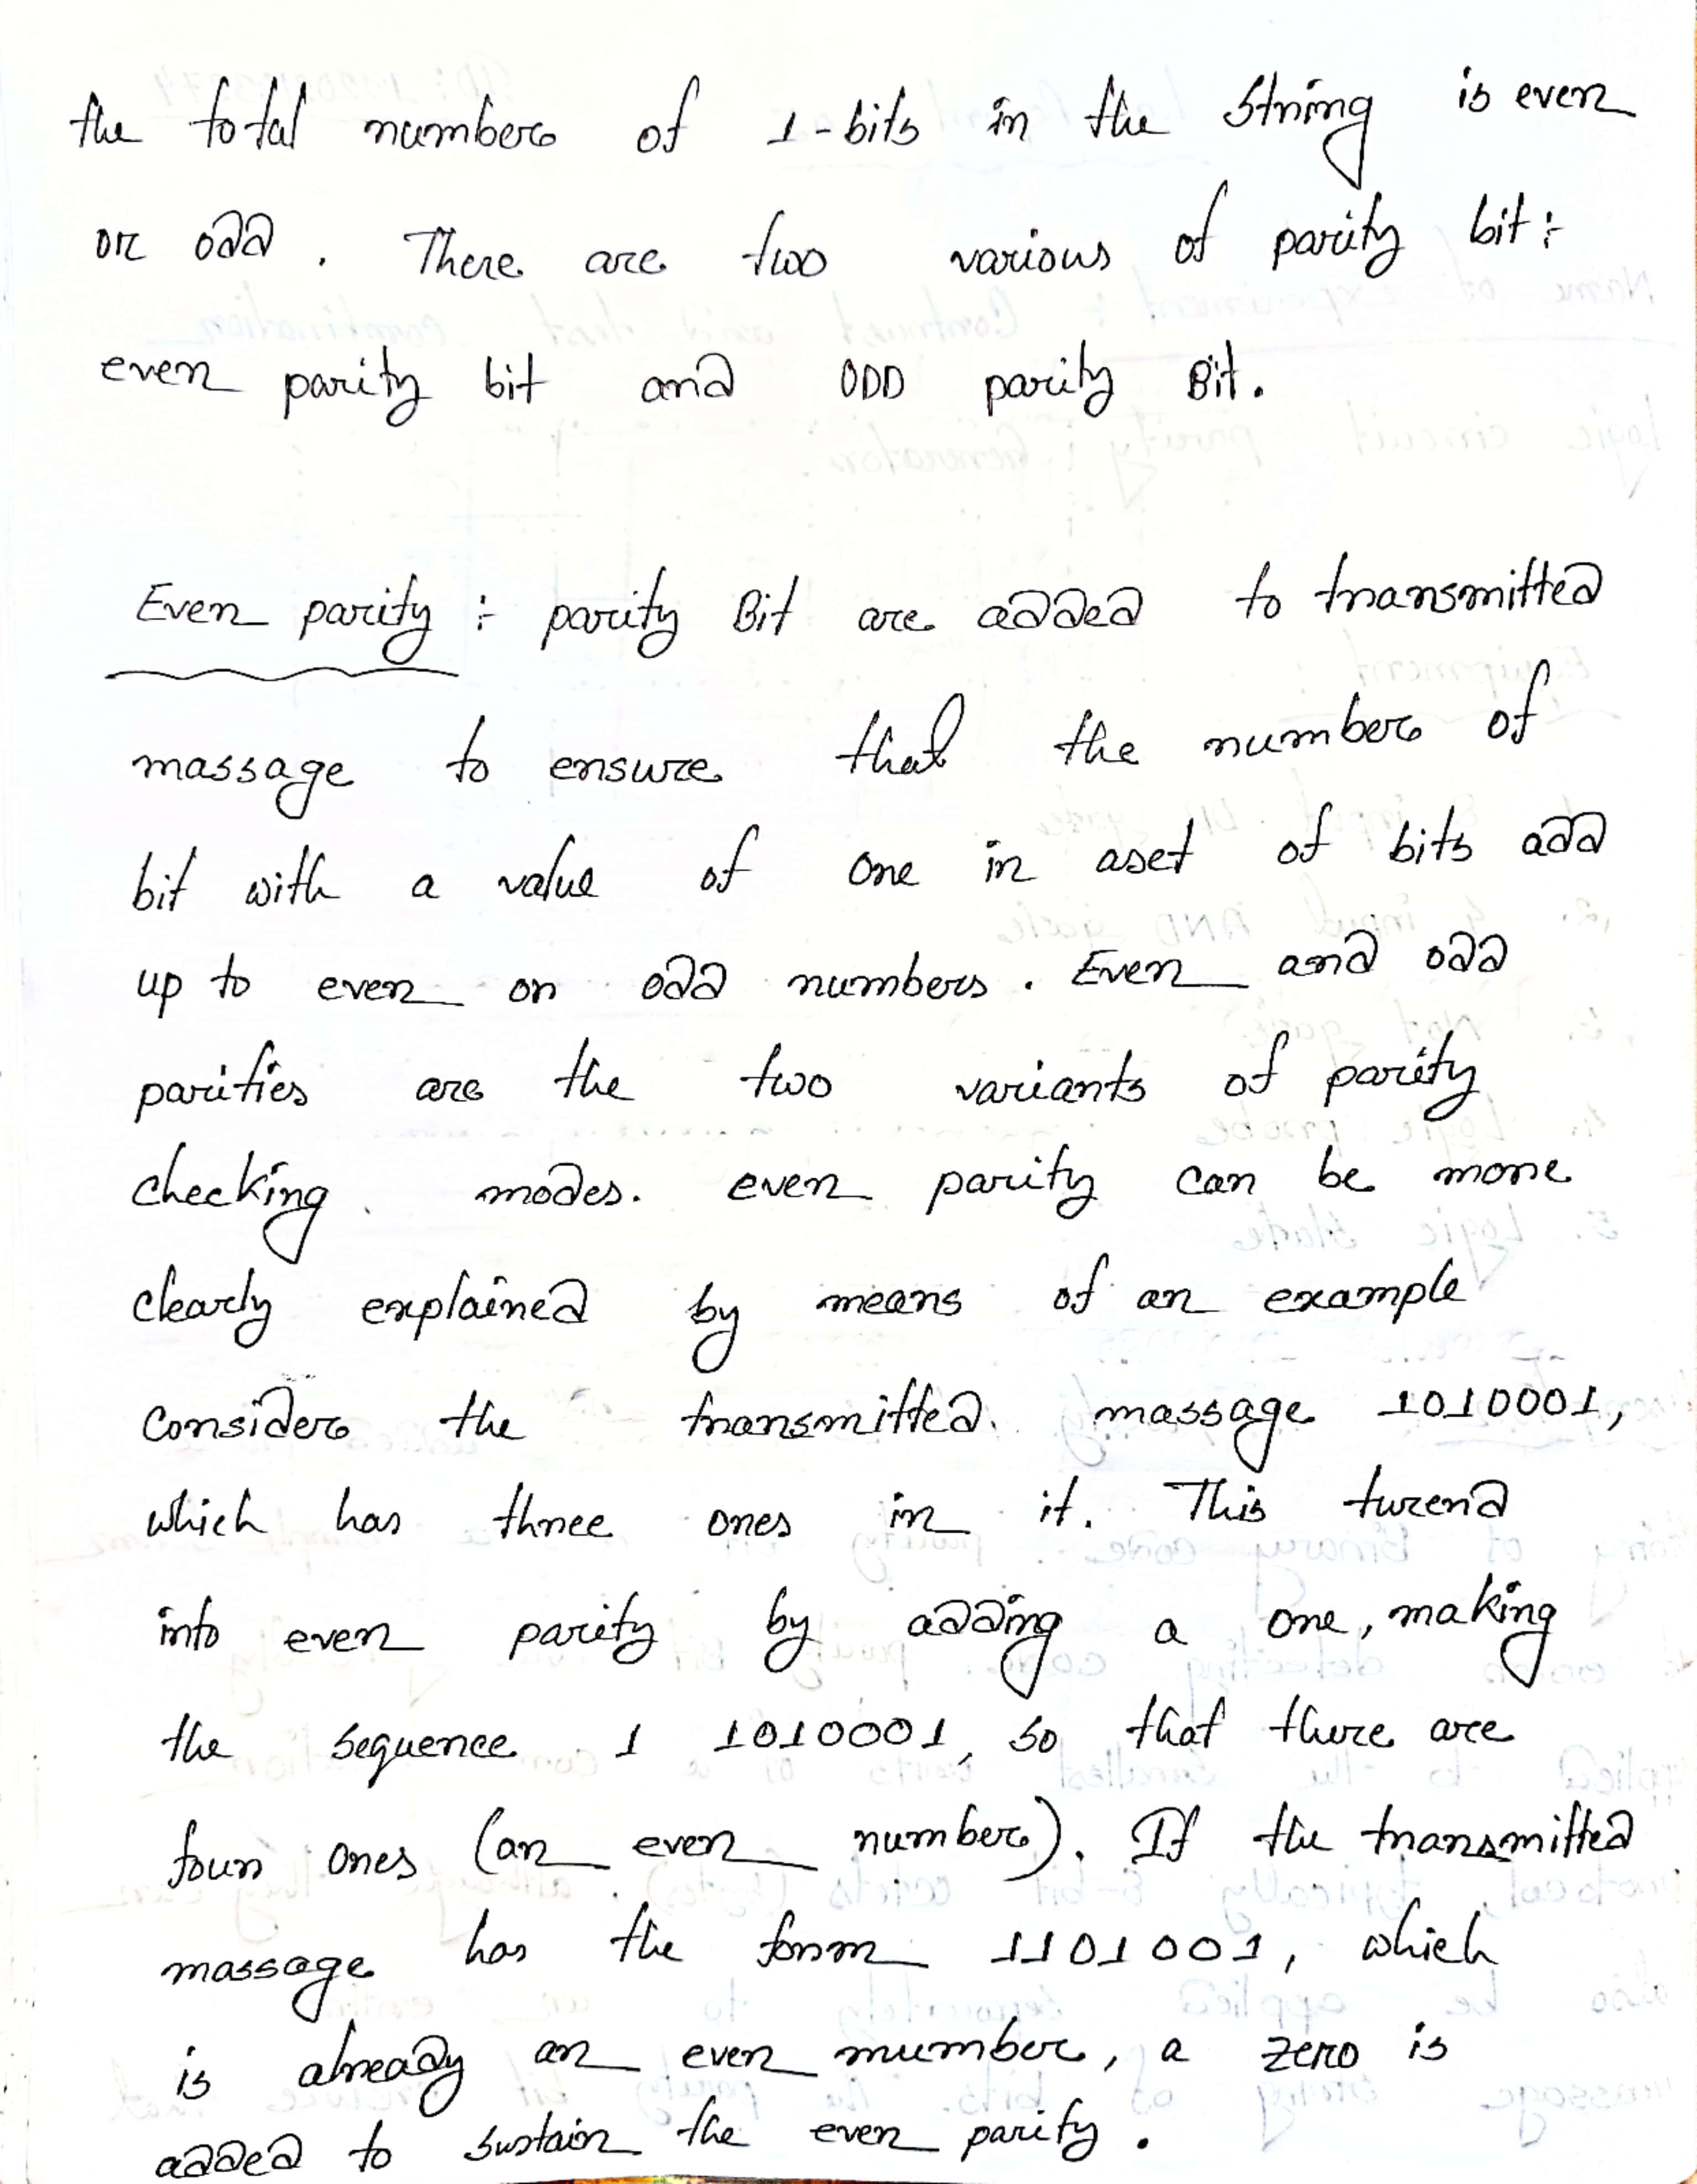 the total number of 1-bits in the string is even
or odd. There are two various of parity bit:
even parity bit and ODD parity Bit.
Even parity: parity Bit are added to transmitted
massage to ensure that the number of
bit with a value of one in aset of bits add
up to even or odd numbers. Even and odd
parities are the two variants of parity
checking modes. even parity can be more
clearly explained by means of an example
Consider the transmitted massage 1010001,
which has three ones in it. This turend
into even parity by adding a one, making
the sequence 1 1010001, so that there are
four ones (an even number). If the transmitted
massage has the form 1101001, which
is already an even number, a zero is
added to sustain the even parity.